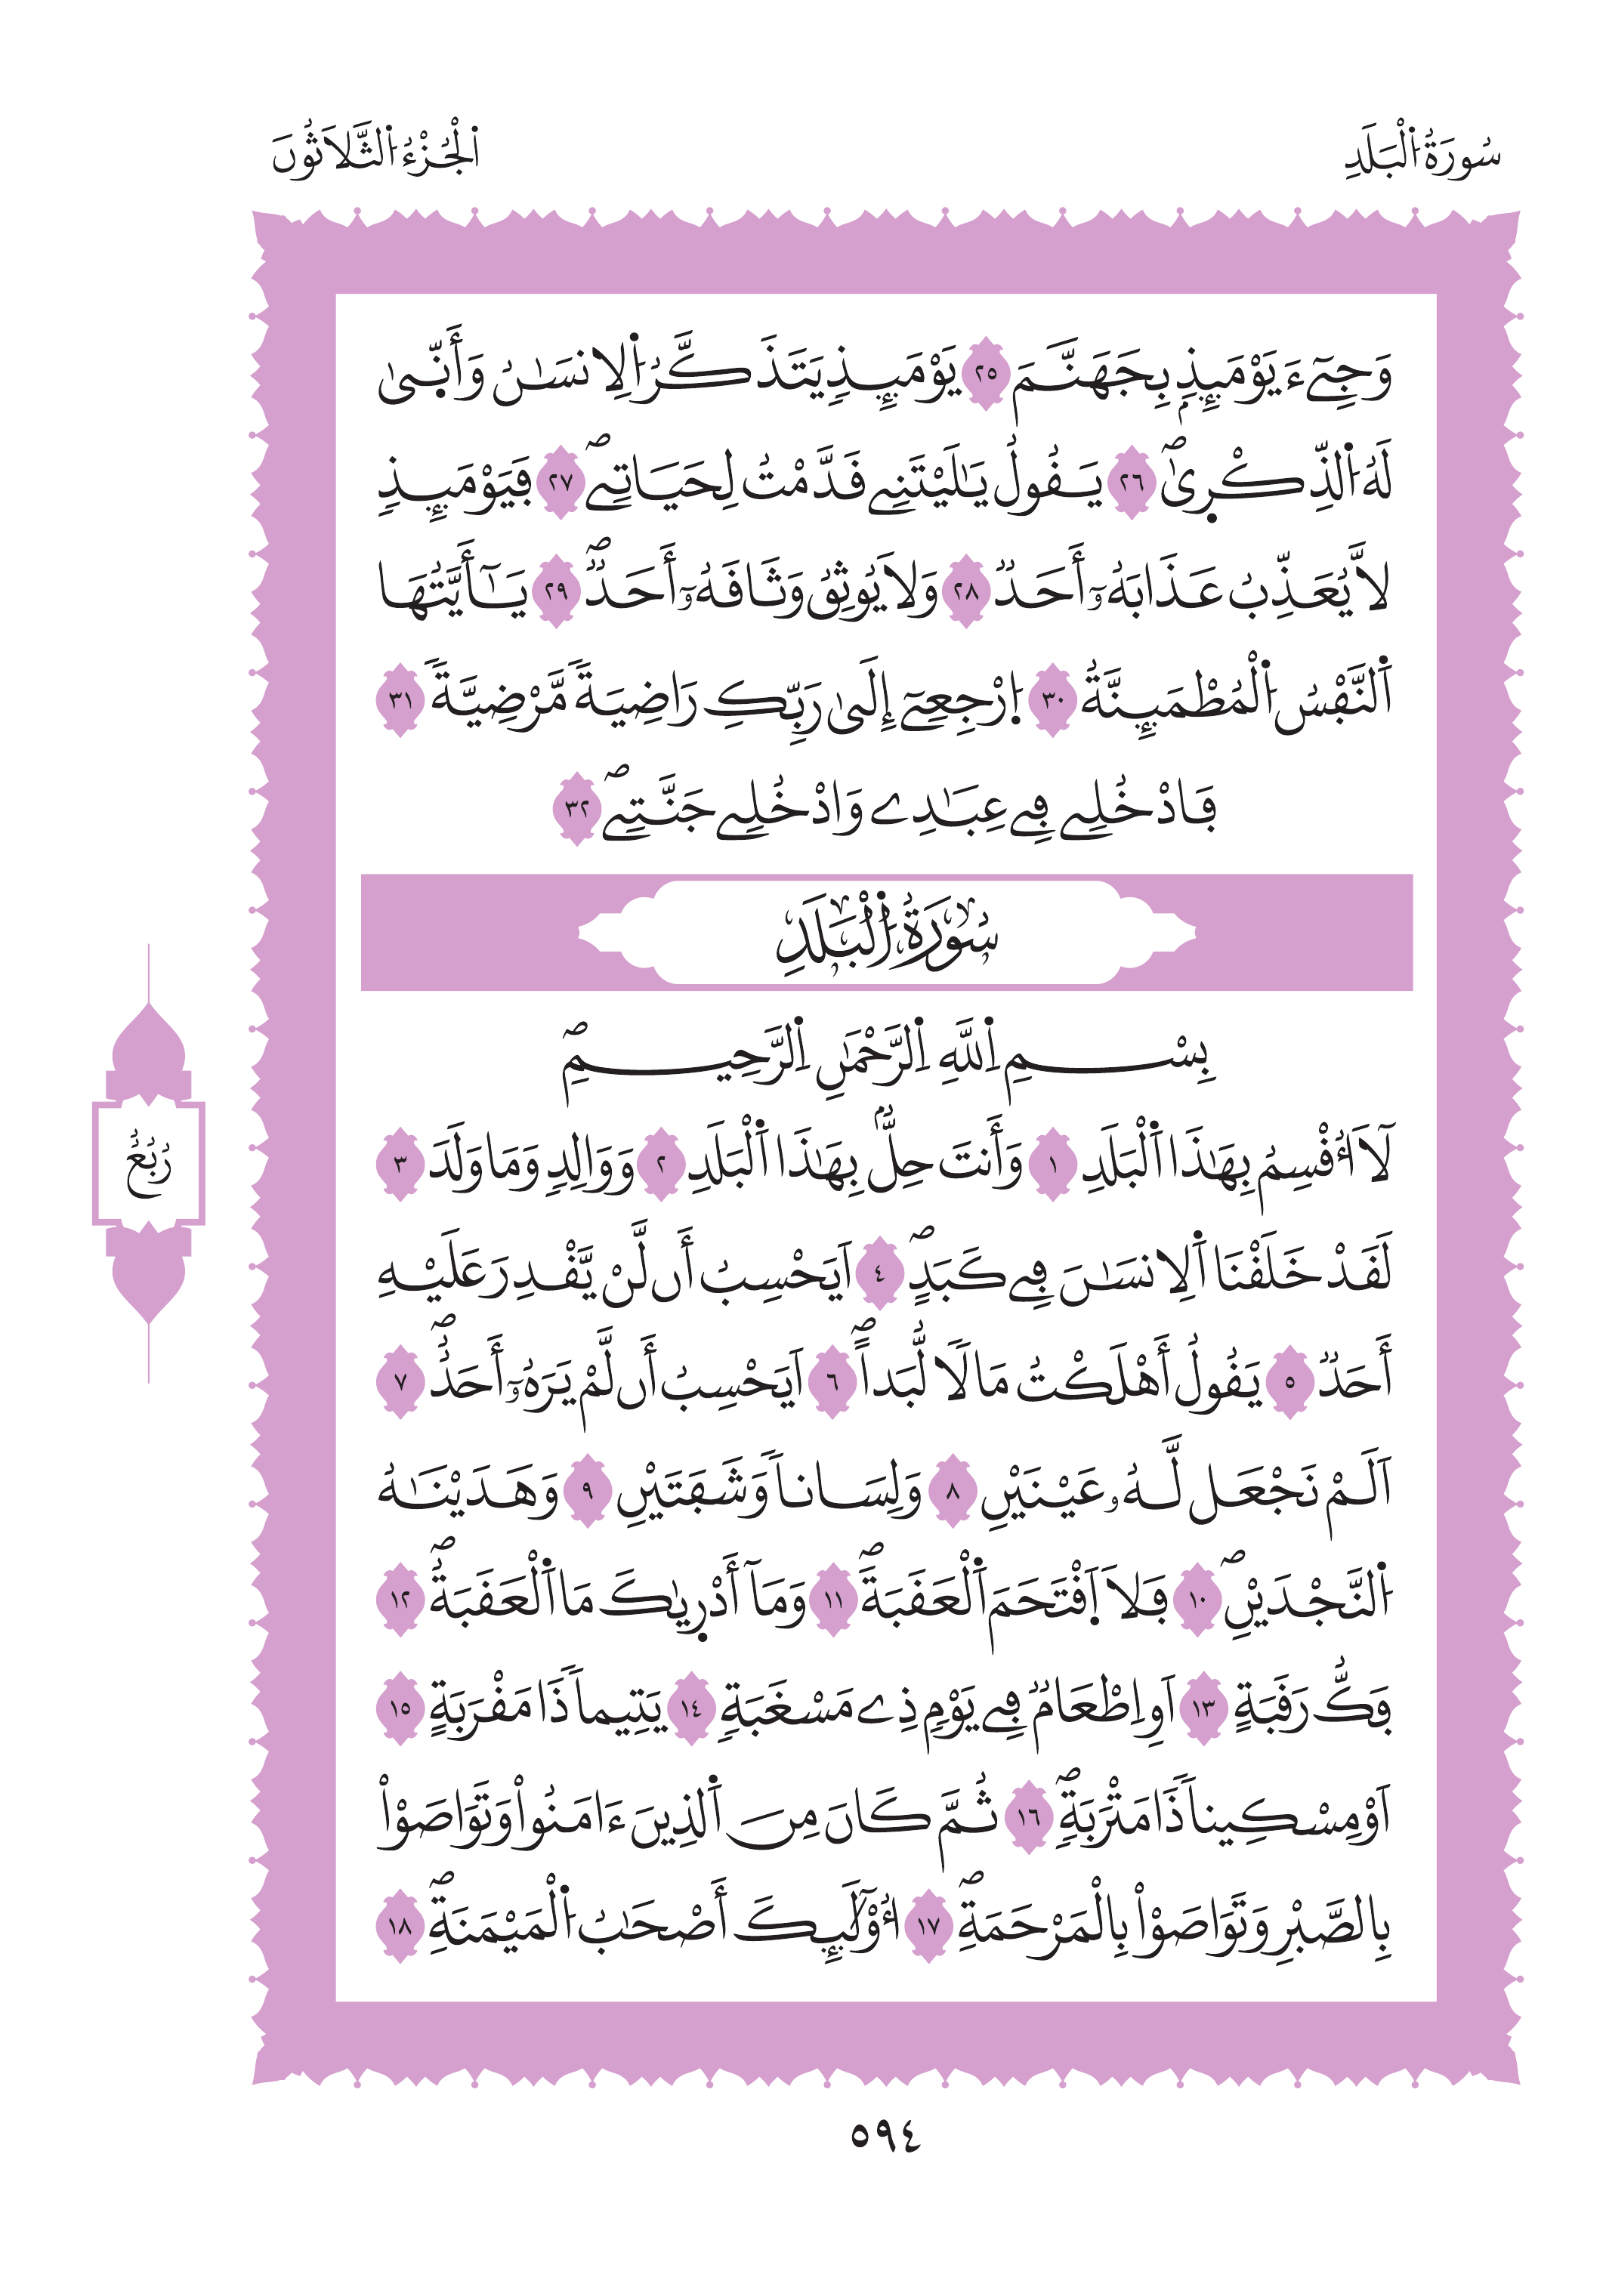 سُورَةُ اُ۬لْبَلَدِ
اَ۬لْجُزْءُ اُ۬لثَّلَاثُونَ
وَجِےٓءَ يَوْمَئِذِۢ بِجَهَنَّمَ ٢٥ يَوْمَئِذٖ يَتَذَكَّرُ اُ۬لِانسَٰنُ وَأَنّ۪ىٰ
لَهُ اُ۬لذِّكْر۪ىٰۖ ٢٦ يَقُولُ يَٰلَيْتَنِے قَدَّمْتُ لِحَيَاتِےۖ ٢٧ فَيَوْمَئِذٖ
لَّا يُعَذِّبُ عَذَابَهُۥٓ أَحَدٞ ٢٨ وَلَا يُوثِقُ وَثَاقَهُۥٓ أَحَدٞۖ ٢٩ يَٰٓأَيَّتُهَا
اَ۬لنَّفْسُ اُ۬لْمُطْمَئِنَّةُ ٣٠ اُ۪رْجِعِےٓ إِلَىٰ رَبِّكِ رَاضِيَةٗ مَّرْضِيَّةٗ ٣١
فَادْخُلِے فِے عِبَٰدِے وَادْخُلِے جَنَّتِےۖ ٣٢
سُورَةُ اُ۬لْبَلَدِ
بِسْمِ اِ۬للَّهِ اِ۬لرَّحْمَٰنِ اِ۬لرَّحِيمِۖ
لَآ أُقْسِمُ بِهَٰذَا اَ۬لْبَلَدِ ١ وَأَنتَ حِلُّۢ بِهَٰذَا اَ۬لْبَلَدِ ٢ وَوَالِدٖ وَمَا وَلَدَ ٣
لَقَدْ خَلَقْنَا اَ۬لِانسَٰنَ فِے كَبَدٍۖ ٤ اَيَحْسِبُ أَن لَّنْ يَّقْدِرَ عَلَيْهِ
أَحَدٞ ٥ يَقُولُ أَهْلَكْتُ مَالاٗ لُّبَداًۖ ٦ اَيَحْسِبُ أَن لَّمْ يَرَهُۥٓ أَحَدٌۖ ٧
اَلَمْ نَجْعَل لَّهُۥ عَيْنَيْنِ ٨ وَلِسَاناٗ وَشَفَتَيْنِ ٩ وَهَدَيْنَٰهُ
اُ۬لنَّجْدَيْنِۖ ١٠ فَلَا اَ۪قْتَحَمَ اَ۬لْعَقَبَةَۖ ١١ وَمَآ أَدْر۪يٰكَ مَا اَ۬لْعَقَبَةُۖ ١٢
فَكُّ رَقَبَةٍ ١٣ اَوِ اِطْعَٰمٞ فِے يَوْمٖ ذِے مَسْغَبَةٖ ١٤ يَتِيماٗ ذَا مَقْرَبَةٍ ١٥
اَوْ مِسْكِيناٗ ذَا مَتْرَبَةٖۖ ١٦ ثُمَّ كَانَ مِنَ اَ۬لذِينَ ءَامَنُواْ وَتَوَاصَوْاْ
بِالصَّبْرِ وَتَوَاصَوْاْ بِالْمَرْحَمَةِۖ ١٧ أُوْلَٰٓئِكَ أَصْحَٰبُ اُ۬لْمَيْمَنَةِۖ ١٨
رُبُعُ
٥٩٤